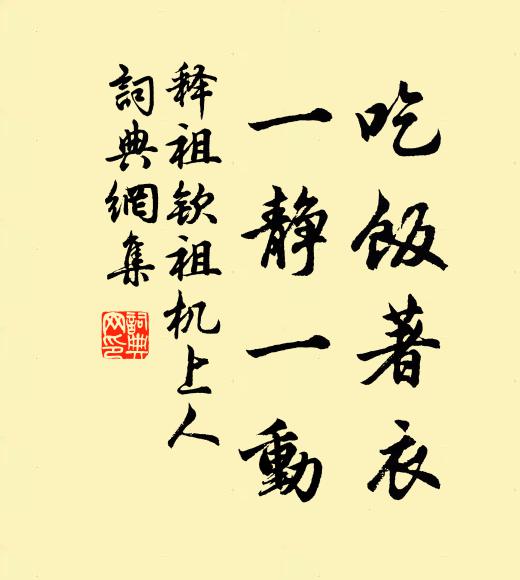 吃飯著衣
一靜一動
释祖钦祖机上人
詞典網集
詞典网印